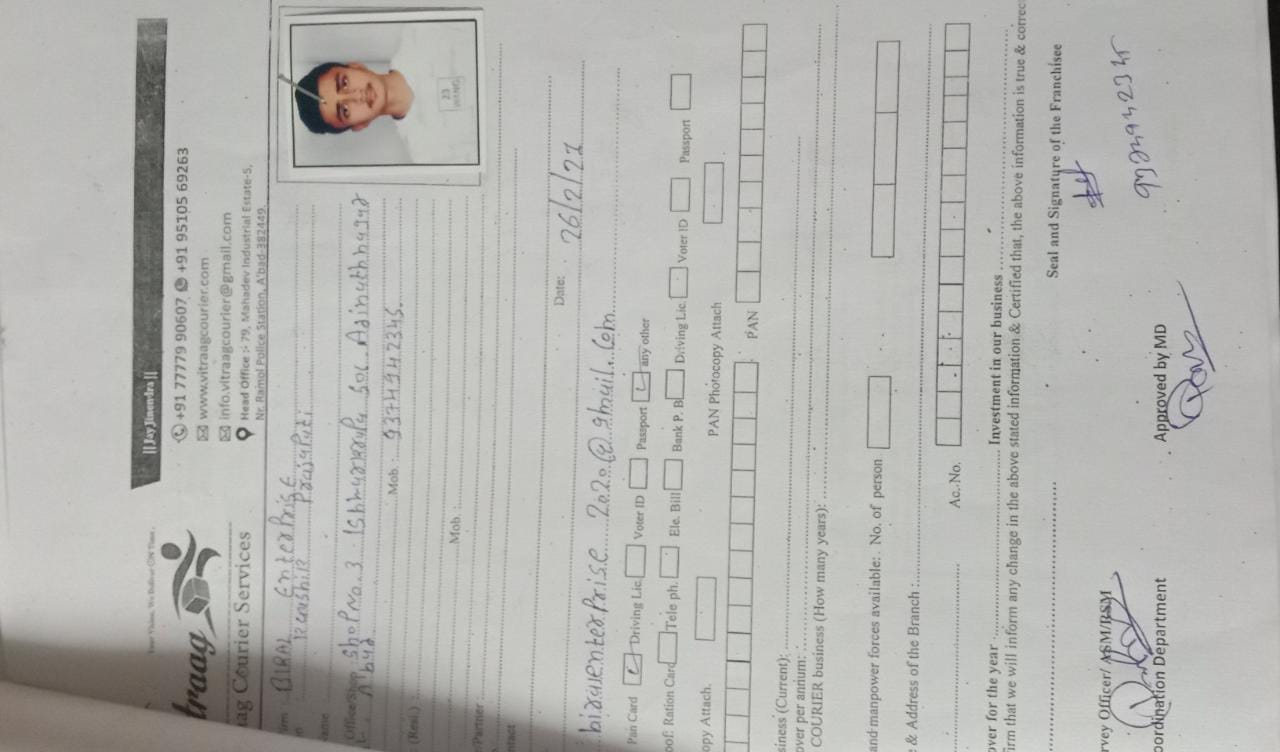 || Jay Jinendra ||
+91 77779 90607 +91 95105 69263
www.vitraagcourier.com
info.vitraagcourier@gmail.com
Head Office :- 79, Mahadev Industrial Estate-5,
Nr. Ramol Police Station, A'bad-382449.
traag
ag Courier Services
BIRAJ EnterPrise
Prajapati
Office/Shop ShopNo.3
Mob.: 9374942345.
(Resi.)
Mob.:
Partner:
Date: 26/2/22
birajenterprise 2020@gmail.com
Pan Card Driving Lic. Voter ID Passport any other
oof: Ration Card Tele ph. Ele. Bill Bank P. B Driving Lic. Voter ID Passport
opy Attach. PAN Photocopy Attach
PAN
siness (Current):
over per annum:
COURIER business (How many years):
and manpower forces available: No. of person
e & Address of the Branch :
Ac. No.
over for the year Investment in our business
firm that we will inform any change in the above stated information & Certified that, the above information is true & correc
Seal and Signature of the Franchisee
rvey Officer/ ASM/RSM
ordination Department Approved by MD